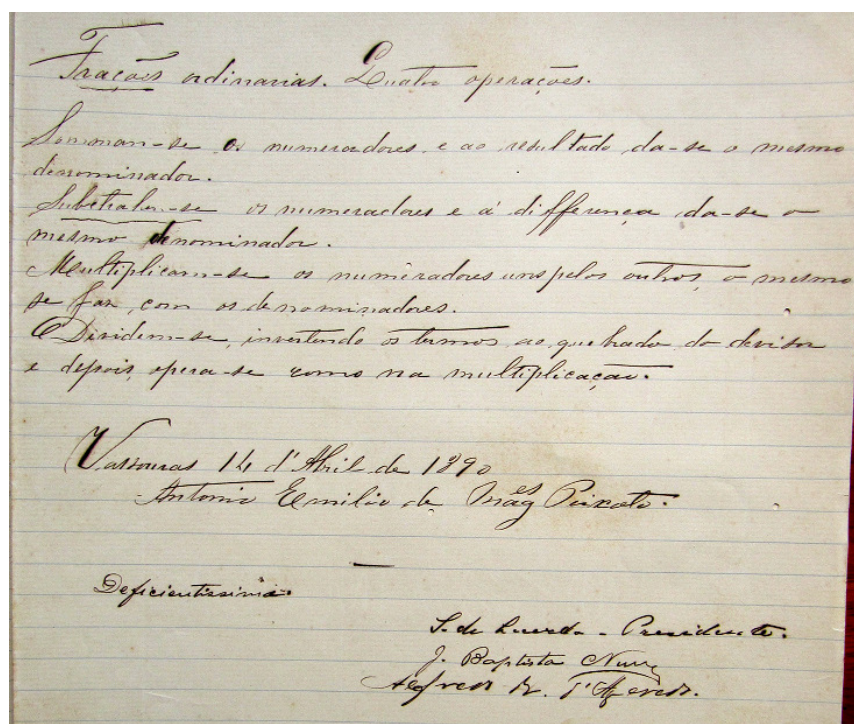 Frações ordinarias. Quatro operações.
Sommam-se os numeradores e ao resultado da-se o mesmo
denominador.
Subtrahe-se os numeradores e á differença da-se o
mesmo denominador.
Multiplicam-se os numeradores uns pelos outros, o mesmo
se faz com os denominadores.
Dividem-se, invertendo os termos ao quebrado do devisor
e depois, opera-se como na multiplicação.
Vassouras 14 d'Abril de 1890
Antonio Emilio de Mag.es Peixoto.
Deficientissima.
S. de - Presidente.
J. Baptista
Alfredo d'Azevedo.